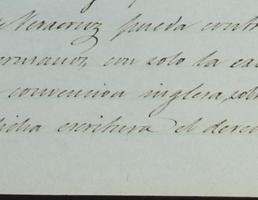 Veracruz pueda contr
con solo la ca
convencion inglesa, sob
dicha escritura el derec